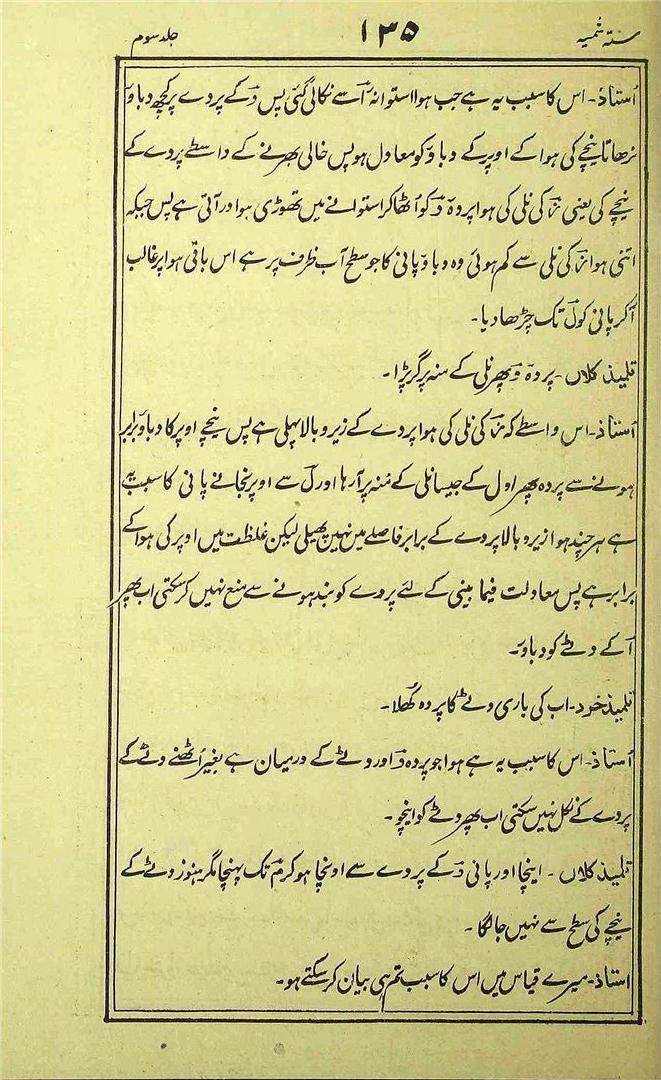 ستہ شمسیہ ۱۳۵ جلد سوم
اُستاذ۔ اس کا سبب یہ ہے جب ہوا استوانہ آ سے نکالی گئی پس دَ کے پردے پر کچھ دباوَ
نرھا تا نیچے کی ہوا کے اوپر کے دباوَ کو معادل ہو پس خالی بھرنے کے داسطے پردے کے
نیچے کی یعنی نَ کی نلی کی ہوا پردہ دَ کو اُٹھا کر استوانے میں تھوڑی ہوا در آتی ہے پس جبکہ
اتنی ہوا نَ کی نلی سے کم ہوئی وہ دباوَ پانی کا جو سطح آب ظرف پر ہے اس باقی ہوا پر غالب
آکر پانی کو لَ تک چڑھا دیا۔
تلمیذ کلاں۔ پردہ دَ پھر نلی کے منہ پر گر پڑا۔
اُستاذ۔ اس واسطے کہ نَ کی نلی کی ہوا پردے کے زیر و بالا پہلی ہے پس نیچے اوپر کا دباوَ برابر
ہونے سے پردہ پھر اول کے جیسا نلی کے مُنہ پر آرہا اور لَ سے اوپر نجانے پانی کا سبب یہ
ہے ہر چند ہوا زیر و بالا پردے کے برابر فاصلے میں نہیں پھیلی لیکن غلظت میں اوپر کی ہوا کے
برابر ہے پس معاولت فیما بینی کے لئے پردے کو بند ہونے سے منع نہیں کر سکتی اب پھر
آ کے دٹے کو دباو۔
تلمیذ خرد۔ اب کی باری وٹے کا پردہ کُھلا۔
اُستاذ۔ اس کا سبب یہ ہے ہوا جو پردہ دَ اور وٹے کے درمیان ہے بغیر اُٹھنے وٹے کے
پردے کے نکل نہیں سکتی اب پھر دٹے کو اینچو۔
تلمیذ کلاں۔ اینچا اور پانی دَ کے پردے سے اونچا ہو کر مَ تک پہنچا مگر ہنوز وٹے کے
نیچے کی سطح سے نہیں جا لگا۔
استاذ۔ میرے قیاس میں اس کا سبب تم ہی بیان کر سکتے ہو۔